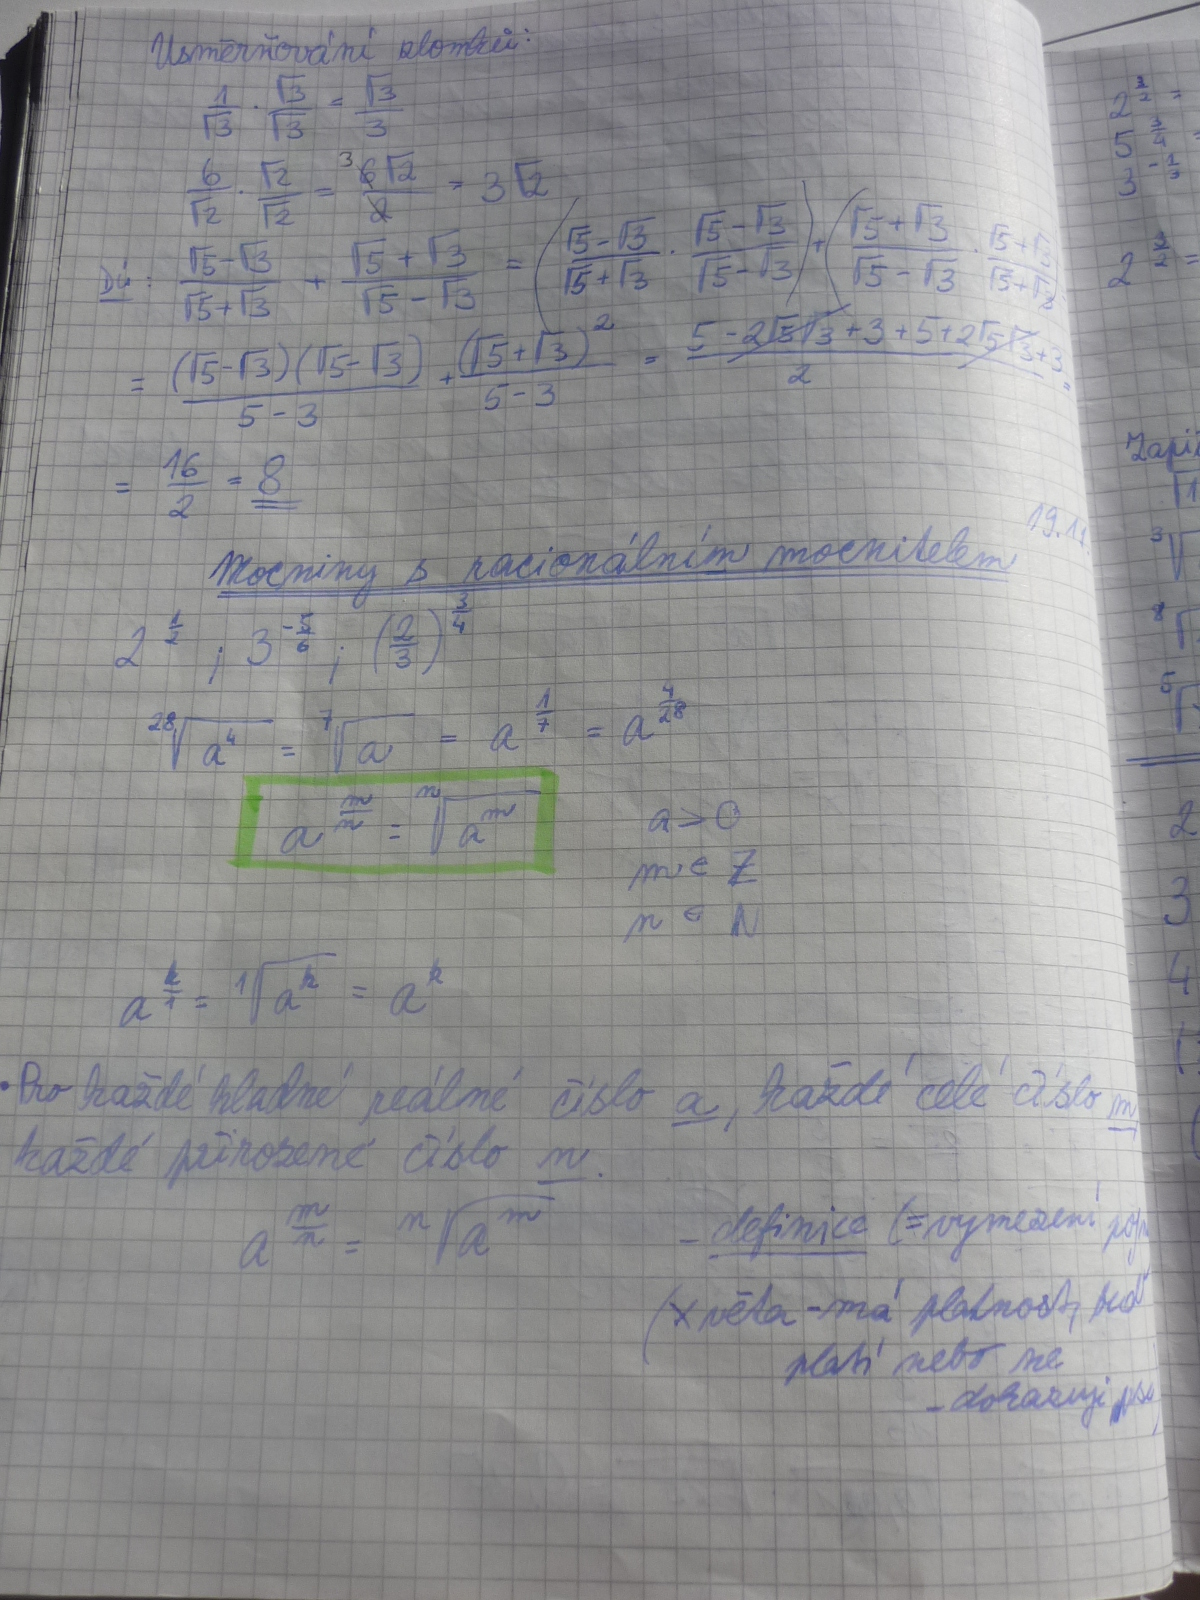 Usměrňování zlomků:
1/√3 · √3/√3 = √3/3
6/√2 · √2/√2 = ³6√2/2 = 3√2
DÚ: (√5-√3)/(√5+√3) + (√5+√3)/(√5-√3) = ((√5-√3)/(√5+√3) · (√5-√3)/(√5-√3)) + ((√5+√3)/(√5-√3) · (√5+√3)/(√5+√3)
= (√5-√3)(√5-√3)/(5-3) + (√5+√3)²/(5-3) = (5-2√5√3+3+5+2√5√3+3)/2 =
= 16/2 = 8
19.11.
Mocniny s racionálním mocnitelem
2^(1/2) ; 3^(-5/6) ; (2/3)^(3/4)
²⁸√a⁴ = ⁷√a = a^(1/7) = a^(4/28)
a^(m/n) = ⁿ√a^m
a > 0
m ∈ Z
n ∈ N
a^(k/1) = ¹√a^k = a^k
• Pro každé kladné reálné číslo a, každé celé číslo m
každé přirozené číslo n.
a^(m/n) = ⁿ√a^m
- definice (= vymezení
(x věta - má platnost, buď
platí nebo ne
- dokazuji
2^(3/2) =
5^(3/4) =
3^(-1/3)
2
3
4